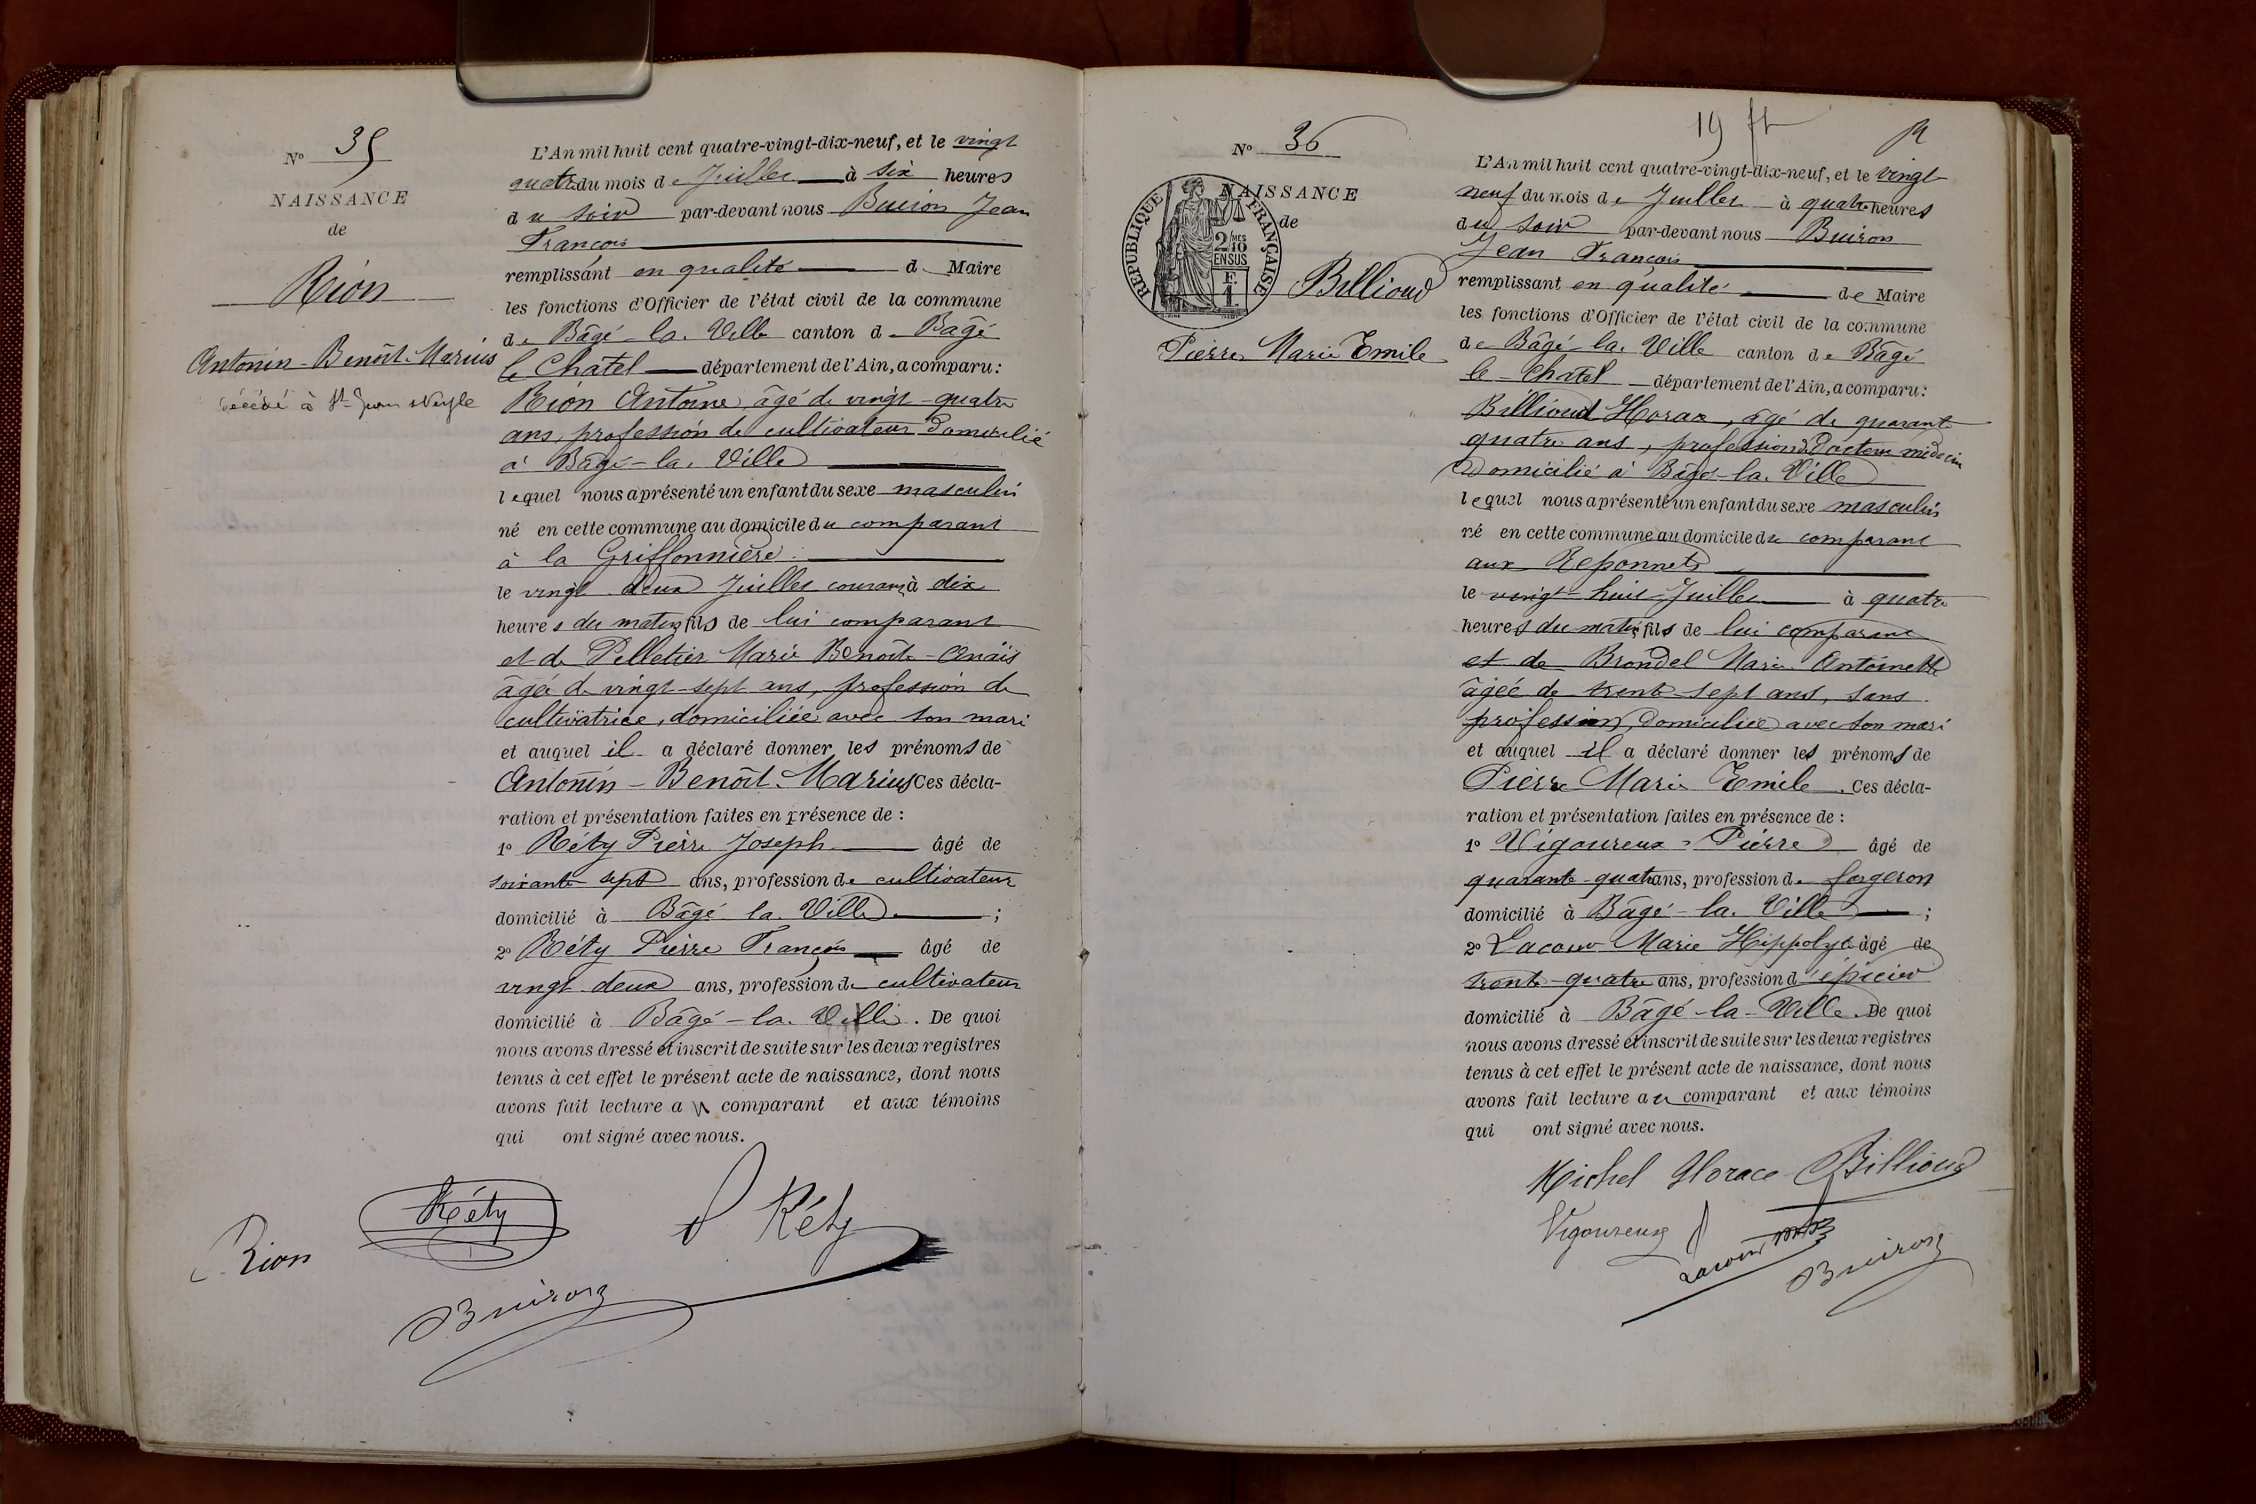 N° 35
NAISSANCE
de
Rion
Antonin - Benoît - Marius
décédé à St-Jean s/Veyle
L'An mil huit cent quatre-vingt-dix-neuf, et le vingt
quatre du mois de Juillet à six heures
du soir par-devant nous Buiron Jean
François
remplissant en qualité d Maire
les fonctions d'Officier de l'état civil de la commune
de Bâgé-la-Ville canton de Bagé
le Chatel département de l'Ain, a comparu:
Rion Antoine, âgé de vingt-quatre
ans, profession de cultivateur domicilié
à Bâgé-la-Ville
lequel nous a présenté un enfant du sexe masculin
né en cette commune au domicile du comparant
à la Griffonnière
le vingt deux Juillet courant à dix
heures du matin fils de lui comparant
et de Pelletier Marie Benoîte-Anaïs
âgée de vingt-sept ans, profession de
cultivatrice, domiciliée avec son mari
et auquel il a déclaré donner les prénoms de
Antonin - Benoît - Marius Ces décla-
ration et présentation faites en présence de :
1° Réty Pierre Joseph âgé de
soixante sept ans, profession de cultivateur
domicilié à Bâgé la Ville ;
2° Réty Pierre François âgé de
vingt deux ans, profession de cultivateur
domicilié à Bâgé-la-Ville. De quoi
nous avons dressé et inscrit de suite sur les deux registres
tenus à cet effet le présent acte de naissance, dont nous
avons fait lecture au comparant et aux témoins
qui ont signé avec nous.
Réty
P Réty
Rion
Buiron
19
N° 36
NAISSANCE
de
RÉPUBLIQUE FRANÇAISE
2/10 MES
EN SUS
Billioud
Pierre Marie Emile
L'An mil huit cent quatre-vingt-dix-neuf, et le vingt
neuf du mois de Juillet à quatre heures
du soir par-devant nous Buiron
Jean François
remplissant en qualité de Maire
les fonctions d'Officier de l'état civil de la commune
de Bâgé-la-Ville canton de Bâgé
le Châtel département de l'Ain, a comparu:
Billioud Horace, âgé de quarante
quatre ans, profession de Docteur médecin
Domicilié à Bâgé-la-Ville
lequel nous a présenté un enfant du sexe masculin
né en cette commune au domicile du comparant
aux Reponnets
le vingt-huit Juillet à quatre
heures du matin fils de lui comparant
et de Brondel Marie Antoinette
âgée de trente-sept ans, sans
profession, domiciliée avec son mari
et auquel il a déclaré donner les prénoms de
Pierre Marie Emile. Ces décla-
ration et présentation faites en présence de :
1° Vigoureux Pierre âgé de
quarante-quatre ans, profession de forgeron
domicilié à Bâgé-la-Ville ;
2° Lacour Marie Hippolyte âgé de
trente-quatre ans, profession d'épicier
domicilié à Bâgé-la-Ville. De quoi
nous avons dressé et inscrit de suite sur les deux registres
tenus à cet effet le présent acte de naissance, dont nous
avons fait lecture au comparant et aux témoins
qui ont signé avec nous.
Michel Horace Billioud
Vigoureux P
Lacour
Buiron